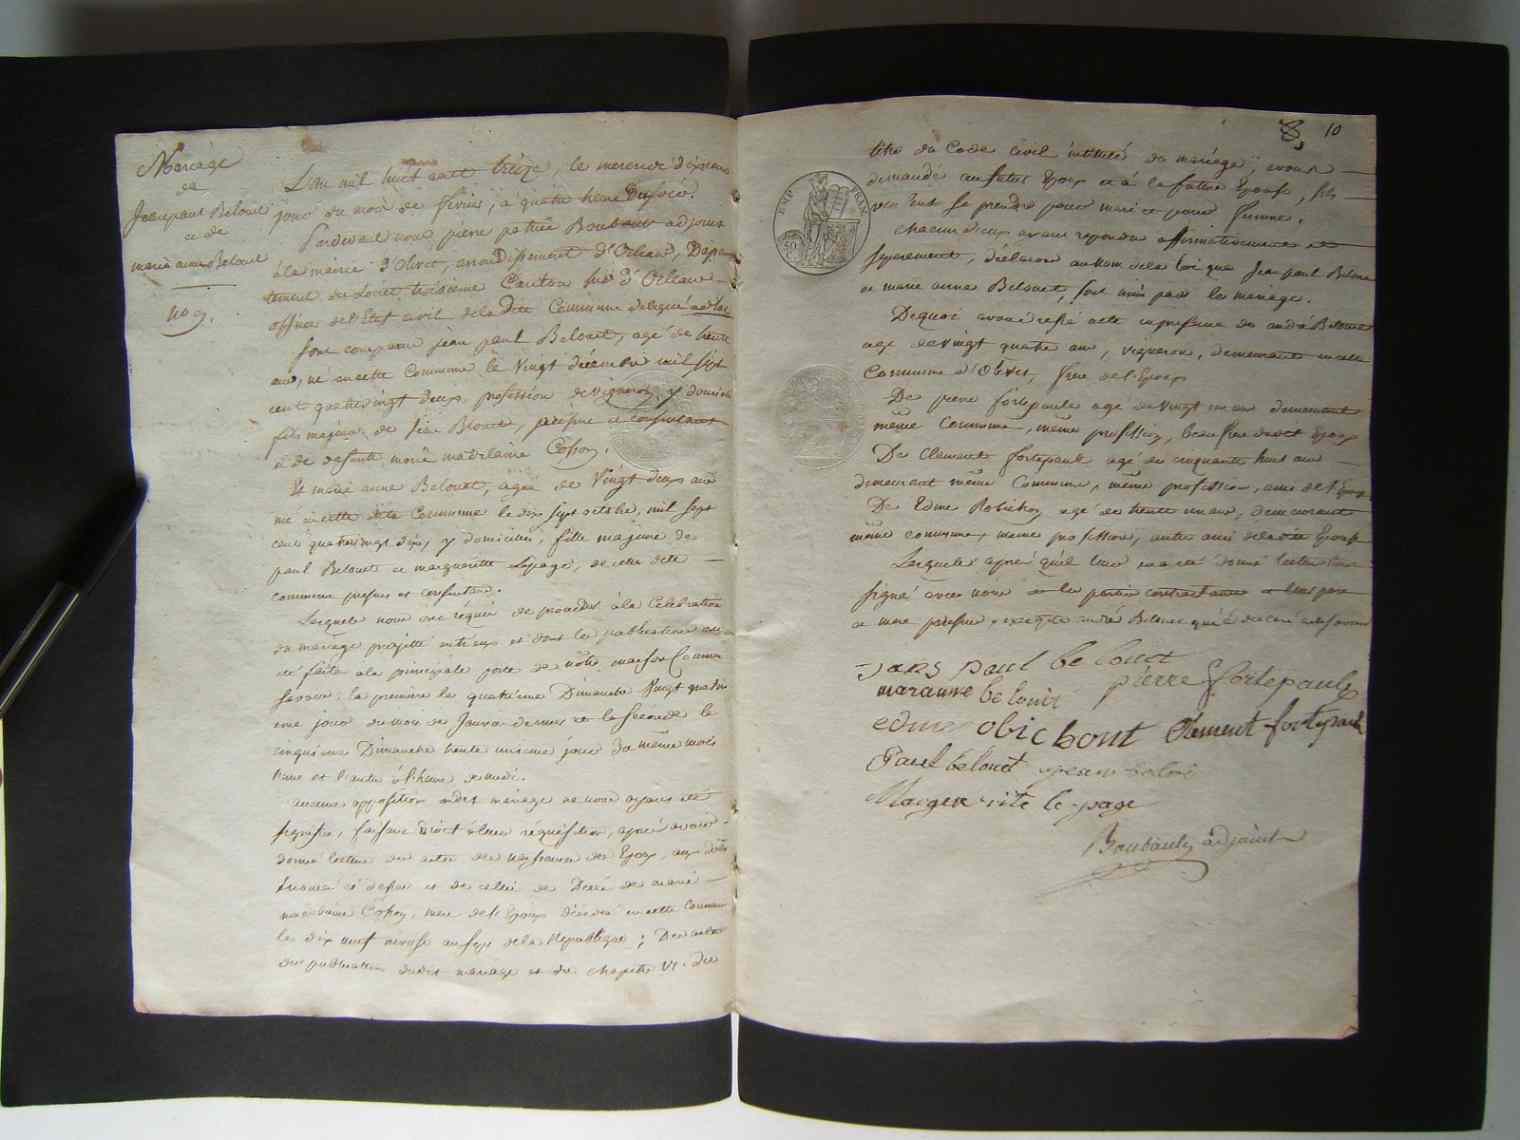 Mariage
de
Jean paul Belouet
et de
marie anne Belouet
no 9.
L'an mil huit cent treize, le mercredi dixieme
jour du mois de fevrier, à quatre heure Du soir.
Pardevant nous pierre patrice Boubault adjoint
à la mairie d'Olivet, arrondissement d'Orleans, Depar
tement du Loiret troisieme Canton sud d'Orleans
officier de l'Etat civil de la dite Commune delegué
sont comparu jean paul Belouet, agé de trente
ans, né en cette Commune le Vingt décembre mil sept
cent quatrevingt deux profession de vigneron, y domicilié
fils majeur de Belouet, present et consentant
et de defunte marie madelaine
Et marie anne Belouet, agée de Vingt deux ans
née en cette dite Commune le dix sept octobre, mil sept
cent quatrevingt dix, y domiciliée, fille majeure de
paul Belouet et margueritte Lepage, de cette dite
commune presens et consentans.
Lesquels nous ont réquis de proceder à la Celebration
du mariage projetté entr'eux et dont les publications ont
été faites à la principale porte de nôtre maison Commune
savoir: la premiere le quatrieme Dimanche Vingt quatri
eme jour du mois de Janvier dernier et la seconde le
cinquieme Dimanche trente unieme jour du même mois
l'une et l'autre à l'heure de midi.
aucune opposition audit mariage ne nous ayant été
signifiée, faisant droit à leur réquisition, après avoir
donné lecture des actes de naissance des Epoux, aux dates
enoncé ci dessus et de celui de Décé de marie
madelaine mere de l'Epoux décédé en cette Commune
le dix neuf nivose an six de la Republique; Des actes
de publication dudit mariage et du chapitre VI du
8, 10
EMP. FRAN.
50
titre du Code civil intitulé du mariage; avons
demandé au futur Epoux et à la future Epouse, s'ils
veulent se prendre pour mari et pour femme.
chacun d'eux ayant repondu affirmativement et
separement, déclarons au nom de la loi que Jean paul Belouet
et marie anne Belouet, sont unis par le mariage.
De quoi avons dressé acte en presence de andré Belouet
agé de vingt quatre ans, vigneron, demeurant en cette
Commune d'Olivet, frere de l'Epoux
De pierre fortepaule agé de vingt ans demeurant
même Commune, même profession, beau frere dudit Epoux
De Clement fortepaule agé de cinquante huit ans
demeurant même Commune, même profession, ami de l'Epoux
De Edme Robichon agé de trente un ans, demeurant
même commune, même profession, autre ami de la dite Epouse
Lesquels après qu'il leur en a été donné lecture l'ont
signé avec nous et les parties contractantes et leurs pere
et mere presens, excepté andré Belouet qui a declaré ne le savoir
jans paul be louet
maranne be louir pierre fortepaule
edme obichont Clement fortepaule
Paul belouet
Margerite le page
Boubault adjoint